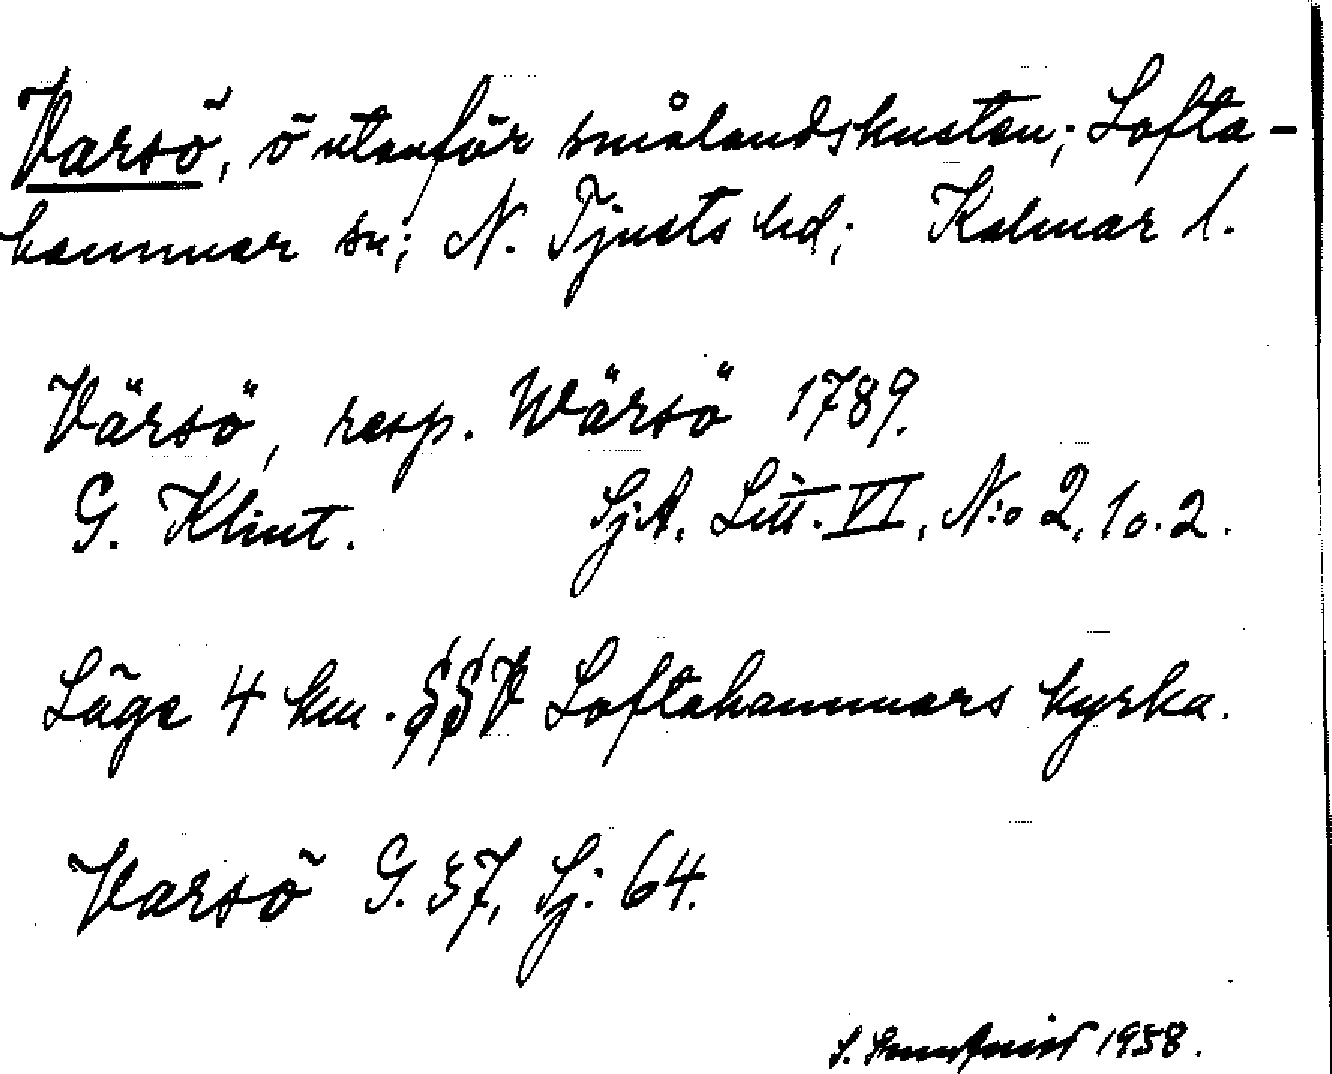 Varsö, ö utanför smålandskusten; Lofta-
hammar sn; N. Tjusts hd; Kalmar l.
Värsö, resp. Wärsö 1789.
G. Klint. Sj.A. Litt. VI, N:o 2, 10.2.
Läge 4 km. SSV Loftahammars kyrka.
Varsö G. 57, Sj: 64.
1958.